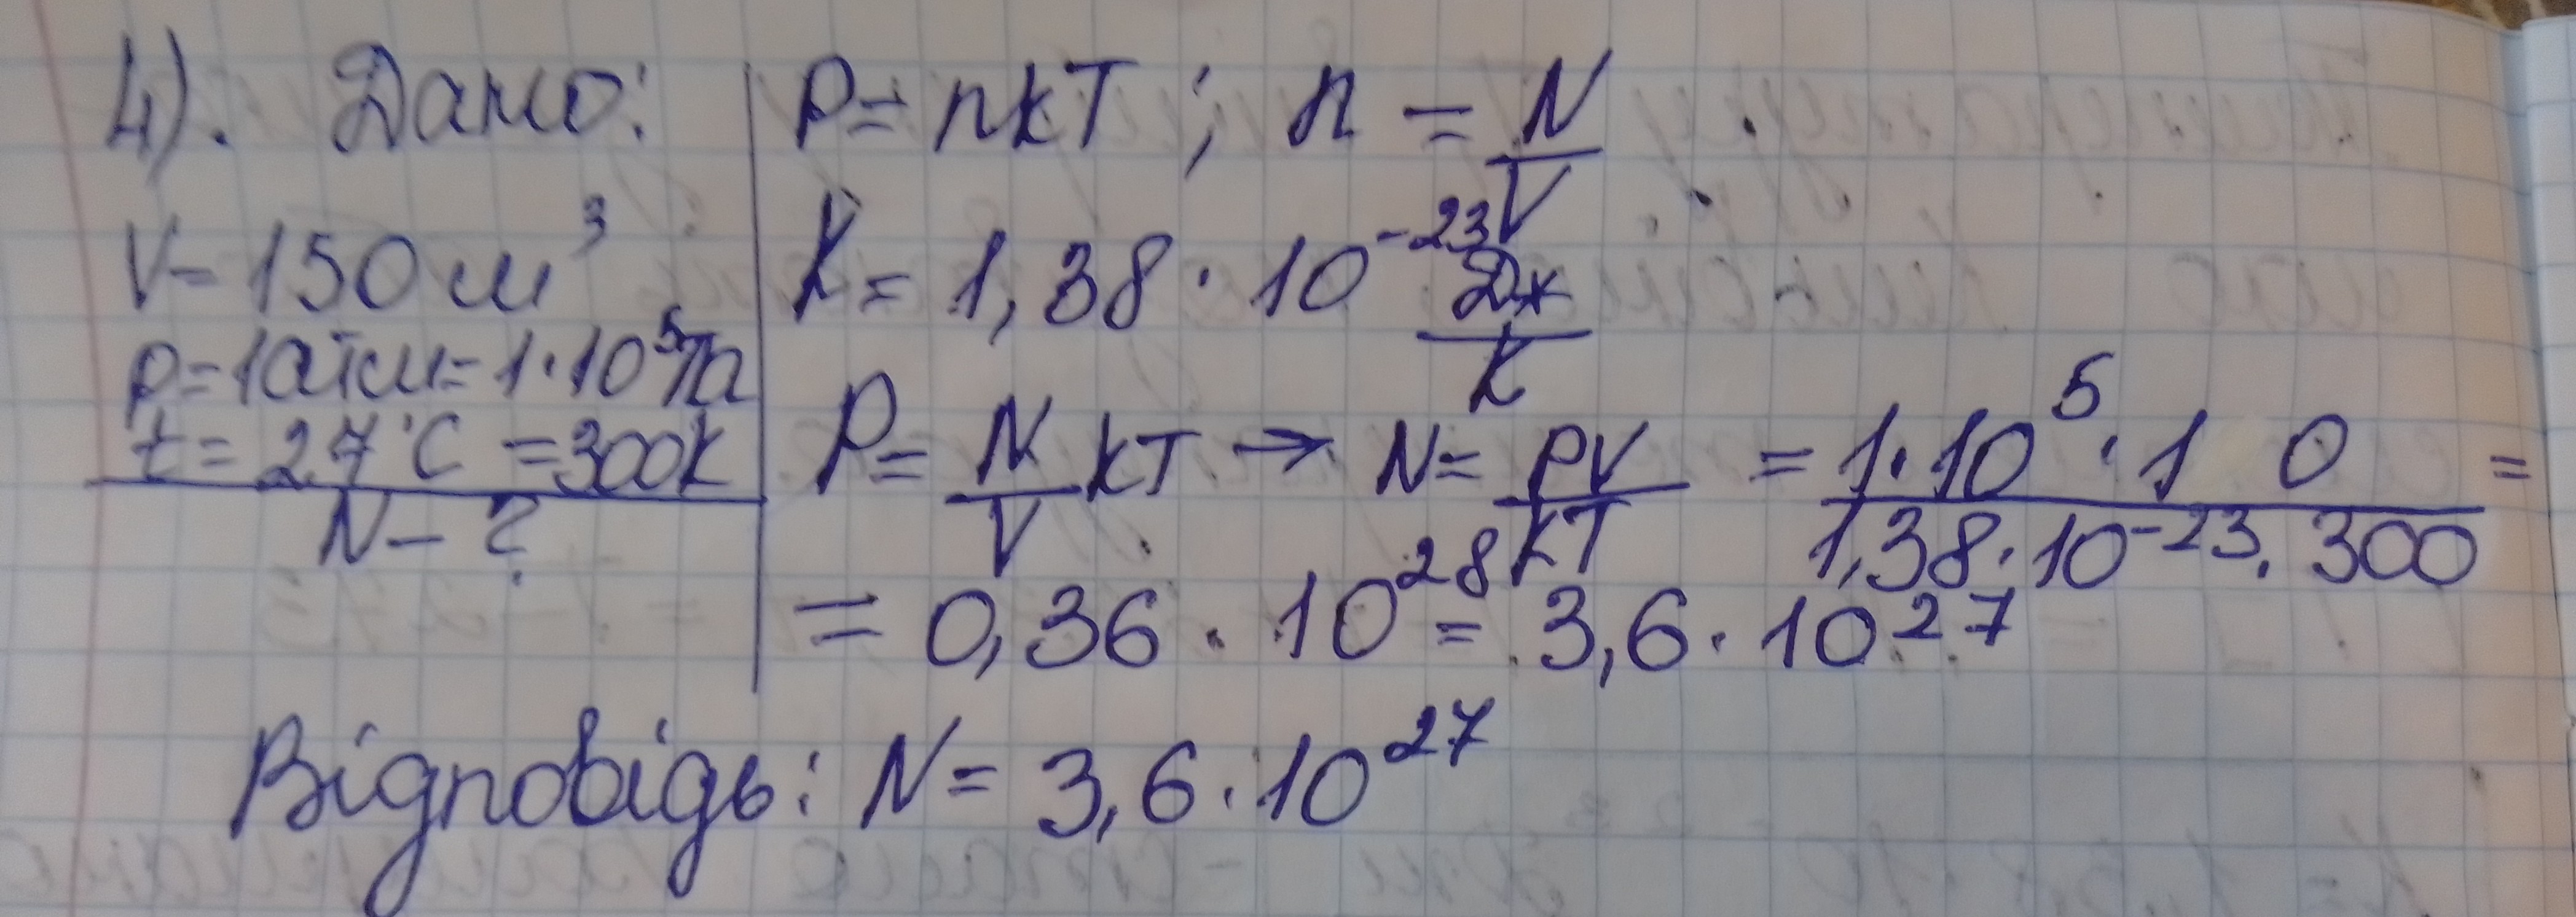 4). Дано:
V = 150 м³
p = 1 атм = 1·10⁵ Па
t = 27°C = 300K
N – ?
P = nkT ; n = N/V
k = 1,38 · 10⁻²³ Дж/К
P = N/V kT → N = PV/kT = 1·10⁵·1 0/1,38·10⁻²³·300 =
= 0,36 · 10²⁸ = 3,6 · 10²⁷
Відповідь: N = 3,6 · 10²⁷